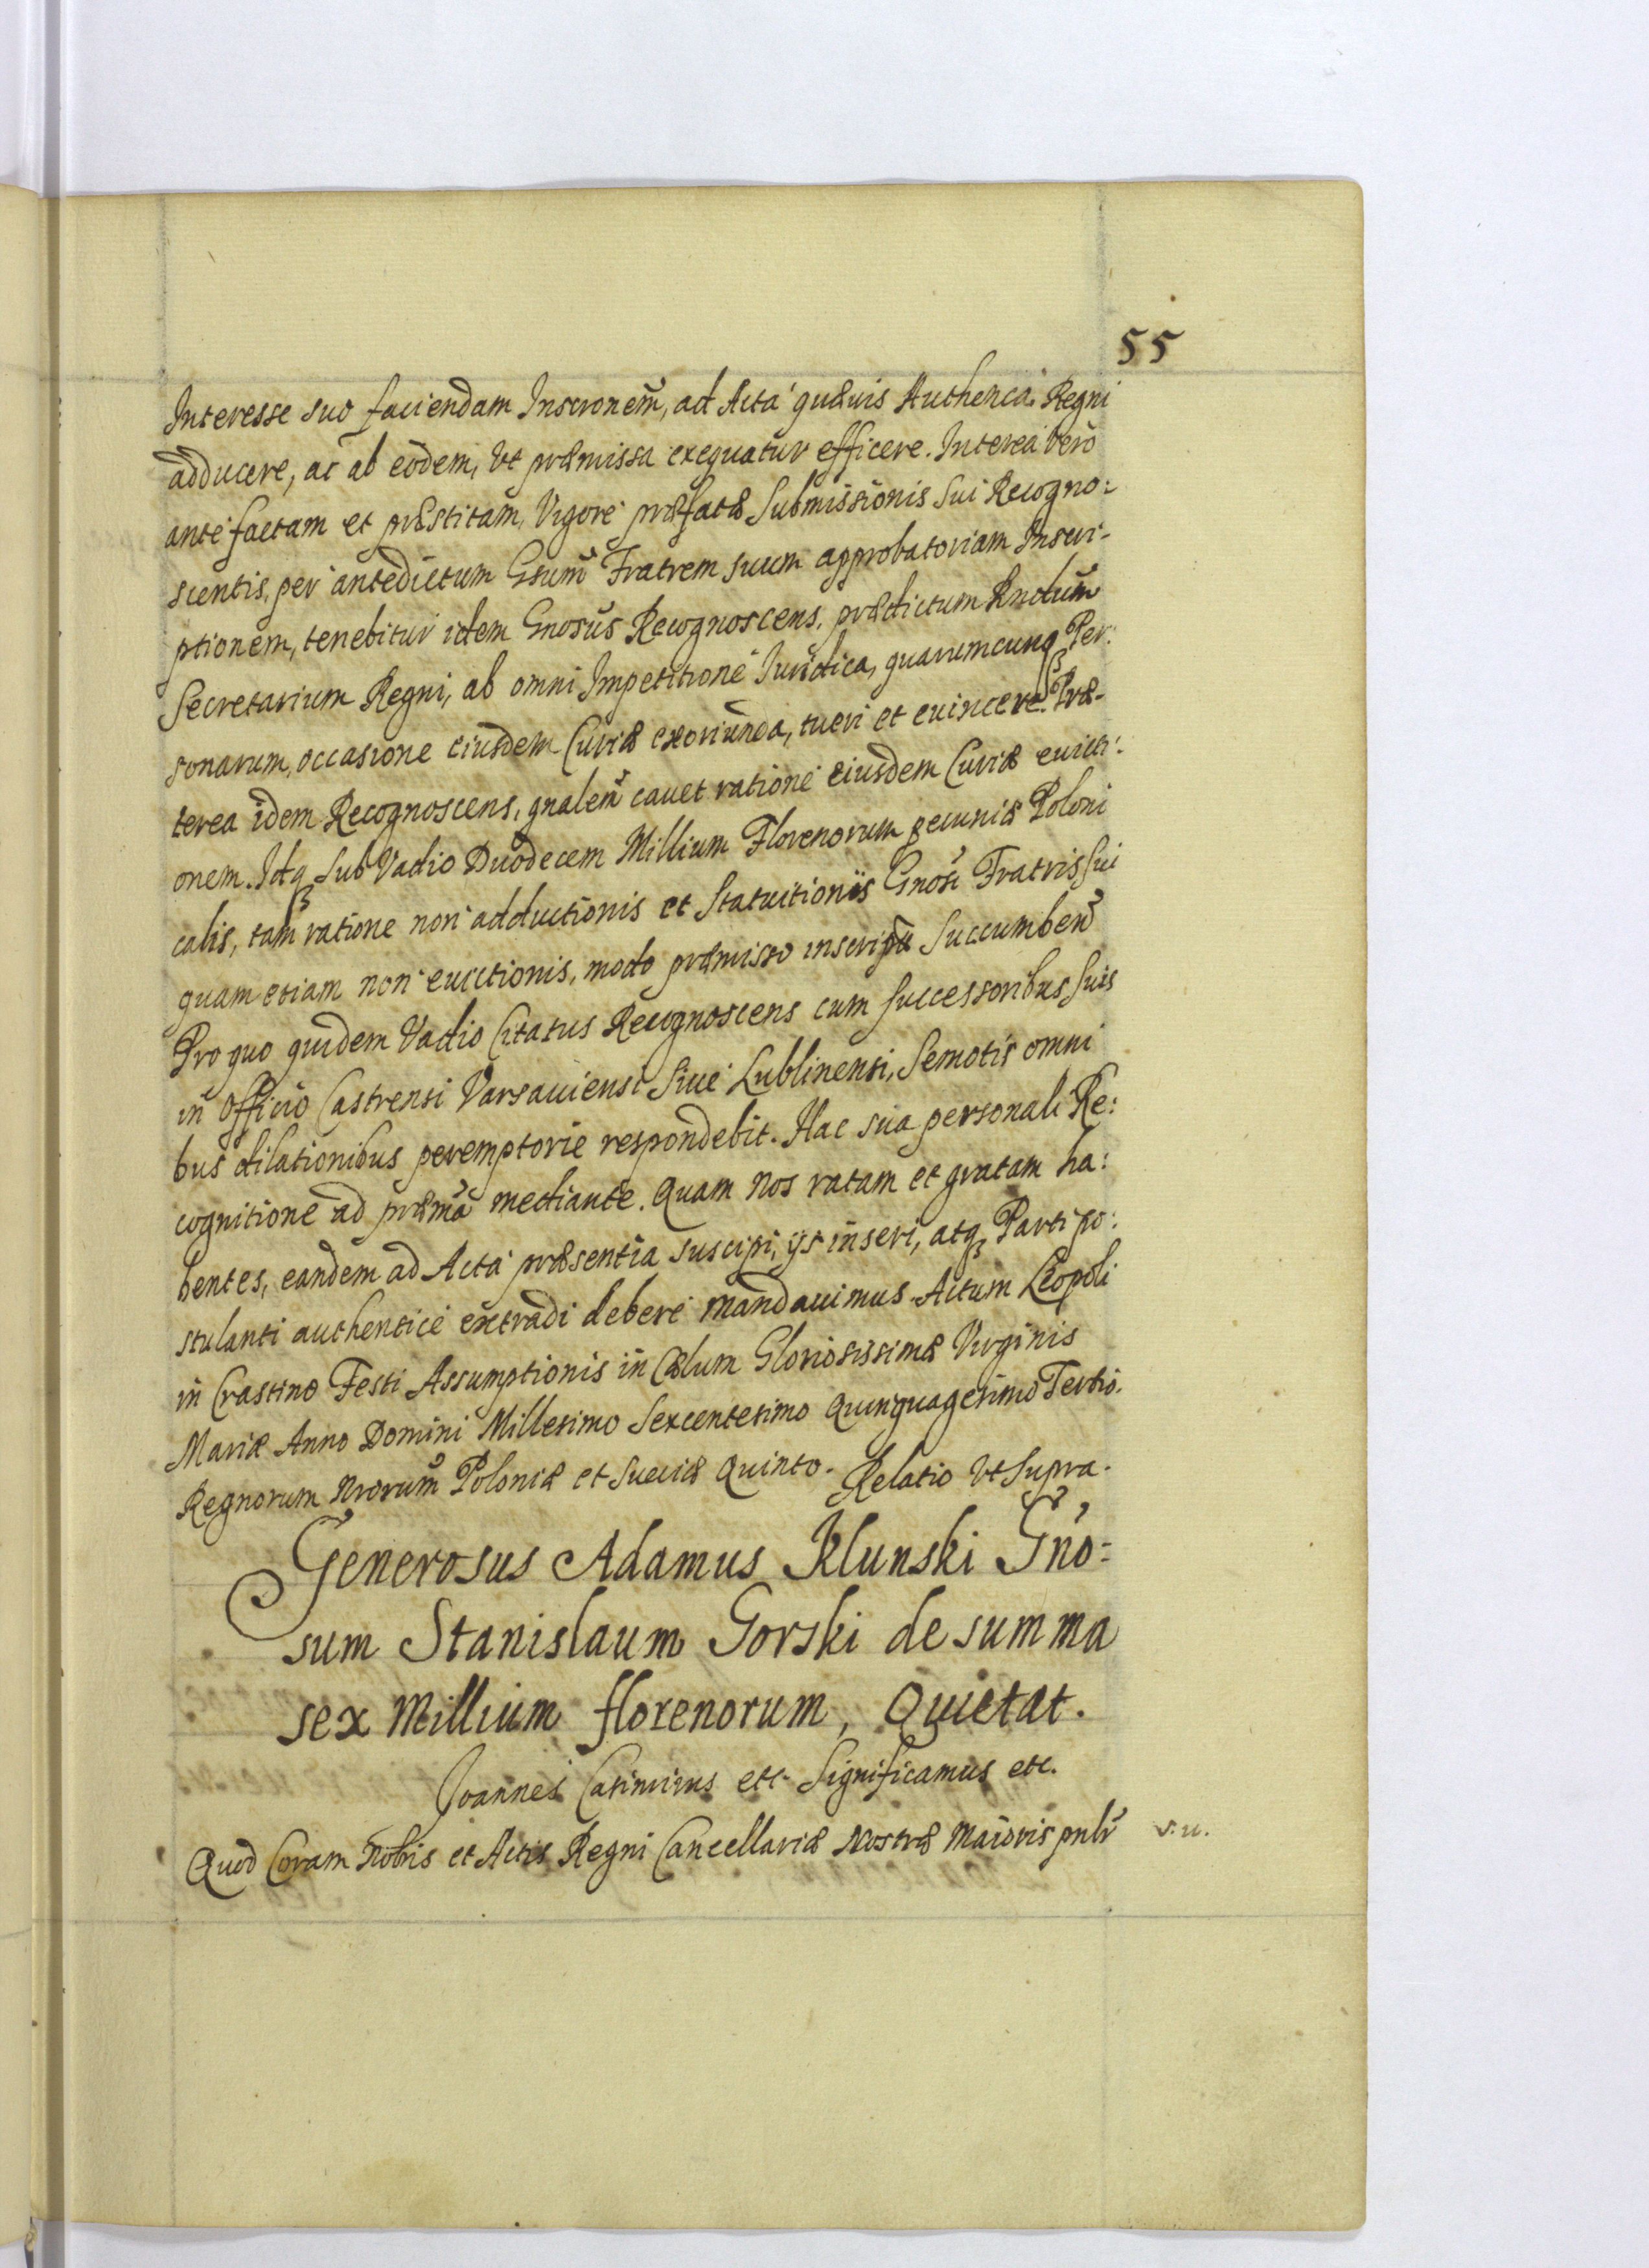 55
Interesse suo faciendam Inscronem̃, ad Acta quævis Authenca Regni
adducere, ac ab eodem, Vt præmissa exequatur efficere. Interea Vero
ante factam et præstitam, Vigore præfatæ Submissionis Sui Recogno:
scentis, per antedictum Gsum̃ Fratrem suum approbatoriam Inscri-
ptionem, tenebitur idem Gnosus Recognoscens, prædictum Rndum̃
Secretarium Regni, ab omni Impetitione Iuridica, quarumcunqȝ Per:
sonarum, occasione eiusdem Curiæ exoriunda, tueri et euincere. Præ-
terea idem Recognoscens, gnalem̃ cauet ratione eiusdem Curiæ euicti:
onem. Idqȝ Sub Vadio Duodecem Millium Florenorum pecuniæ Poloni
calis, tam ratione non adductionis et Statuitionis Gnosi Fratris Sui
quam etiam non euictionis, modo præmisso inscripta Succumbeñ
Pro quo quidem Vadio Citatus Recognoscens cum Successoribus Suis
in Officio Castrensi Varsauiensi Siue Lublinensi, Semotis omni
bus dilationibus peremptorie respondebit. Hac sua personali Re:
cognitione ad præmã mediante. Quam nos ratam et gratam ha:
bentes, eandem ad Acta præsentia suscipi, ijs inseri, atqȝ Parti po:
stulanti authentice extradi debere mandauimus. Actum Leopoli
in Crastino Festi Assumptionis in Cælum Gloriosissimæ Virginis
Mariæ Anno Domini Millesimo Sexcentesimo Quinquagesimo Tertio.
Regnorum Nrorum̃ Poloniæ et Sueciæ Quinto. Relatio Vt Supra.
Generosus Adamus Klunski Gño=
sum Stanislaum Gorski de summa
sex Millium florenorum, Quietat.
Joannes Casimirus etc. Significamus etc.
Quod Coram Nobis et Actis Regni Cancellariæ Nostræ Maioris pnbr̃ v. u.